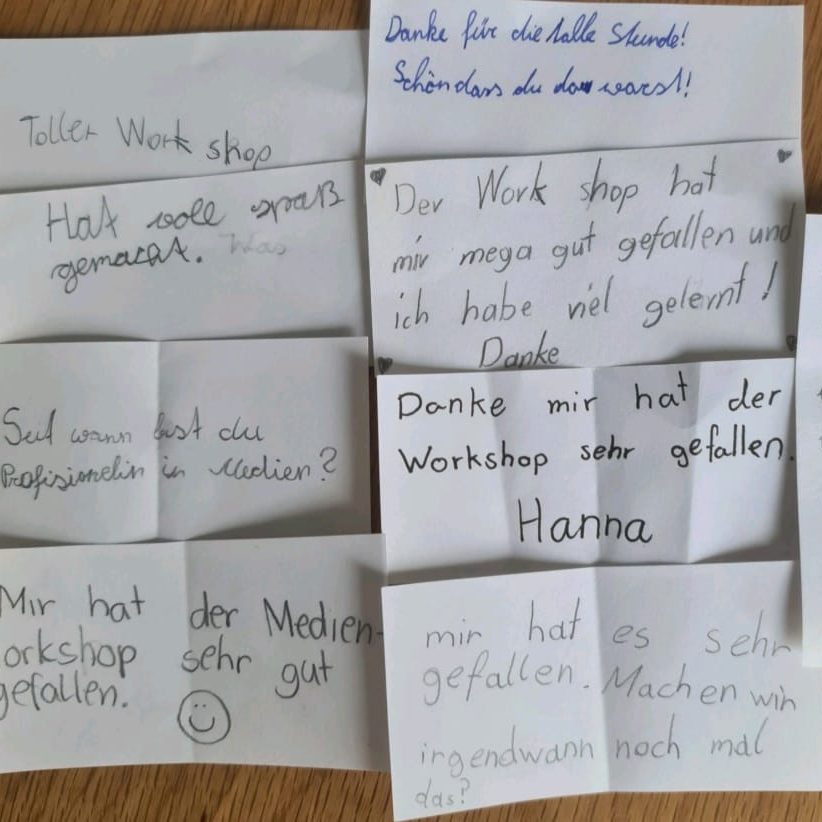 Toller Work shop
Hat voll spaß
gemacht. Was
Seit wann bist du
Profisionelin in Medien?
Mir hat der Medien-
orkshop sehr gut
gefallen.
Danke für die tolle Stunde!
Schön dass du da warst!
Der Work shop hat
mir mega gut gefallen und
ich habe viel gelernt!
Danke
Danke mir hat der
Workshop sehr gefallen.
Hanna
mir hat es sehr
gefallen. Machen wir
irgendwann noch mal
das?